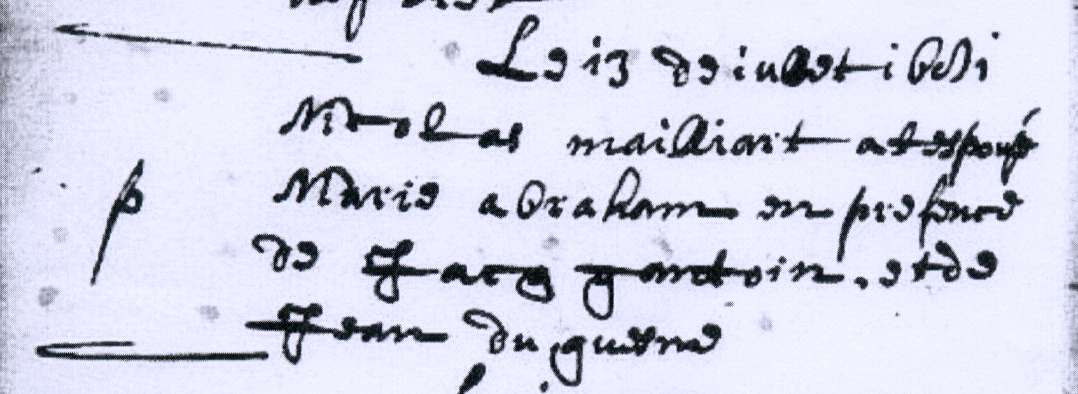 Le i3 de iullet i6
Nicolas mailliart at espousé
Marie abraham en presence
de Jacq gantoin. et de
Jean du quesne